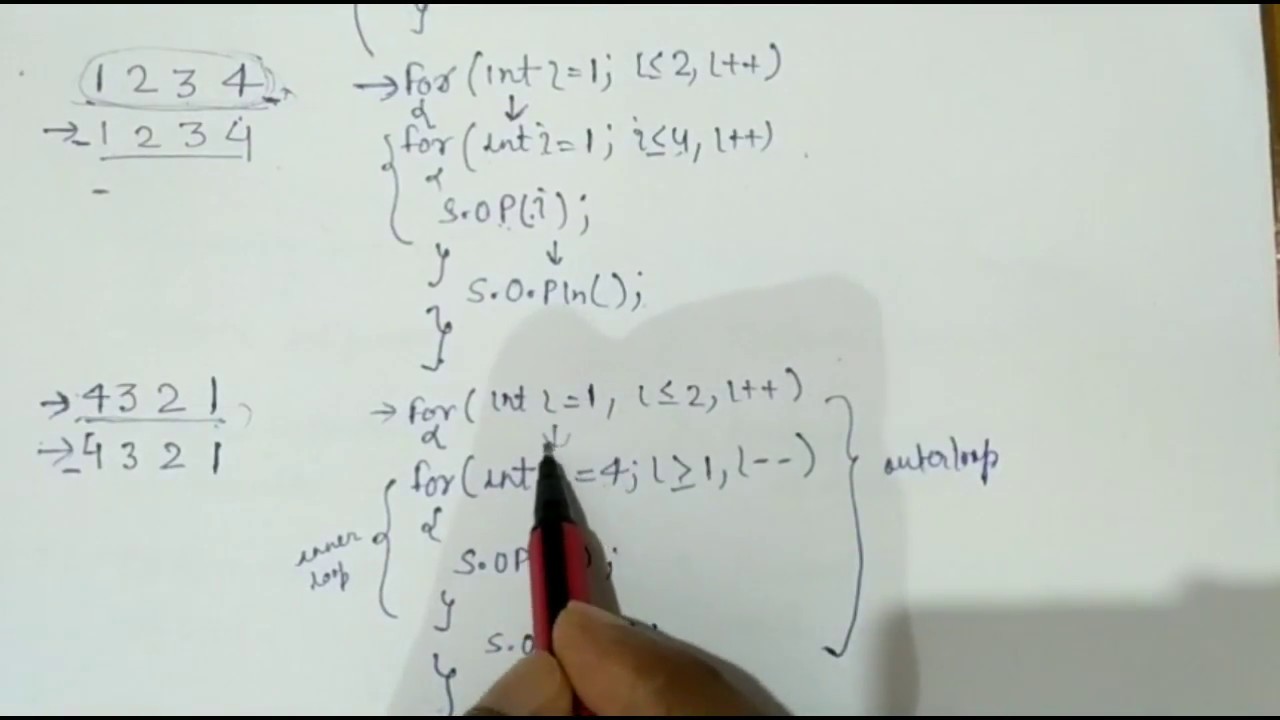 }
1 2 3 4
→ for (int i=1; i≤2, i++)
{
→ 1 2 3 4
for (int i=1; i≤4, i++)
{
S.OP(i);
}
S.O.Pln();
}
→ 4 3 2 1
→ for (int i=1, i≤2, i++)
{
→ 4 3 2 1
for (int =4; i≥1, i--)
outerloop
{
inner
loop
S.OP );
}
S.O
}